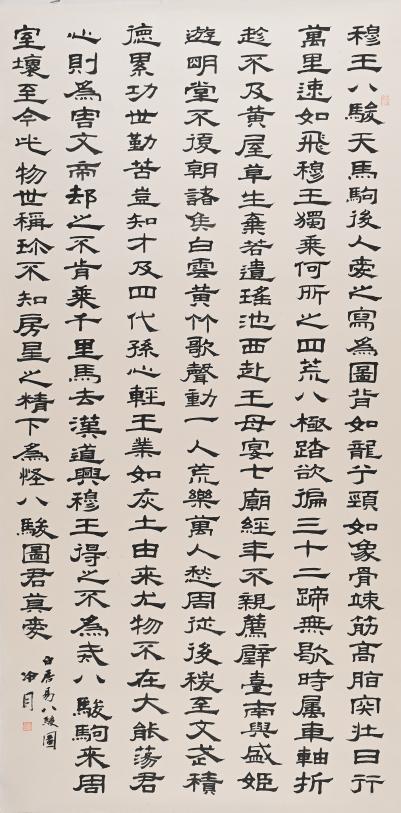 穆王八駿天馬駒後人愛之寫為圖背如龍兮頸如象骨竦筋高脂宍壯日行
萬里速如飛穆王獨乘何所之四荒八極踏欲徧三十二蹄無歇時属車軸折
趁不及黃屋草生棄若遺瑤池西赴王母宴七廟經年不親薦璧臺南與盛姬
遊明堂不復朝諸侯白雲黃竹歌聲動一人荒樂萬人愁周從後稷至文武積
德累功世勤苦豈知才及四代孫心輕王業如灰土由来尤物不在大能蕩君
心則為害文帝却之不肯乘千里馬去漢道興穆王得之不為戒八駿駒来周
室壞至今此物世稱珎不知房星之精下為怪八駿圖君莫愛
白居易八駿圖